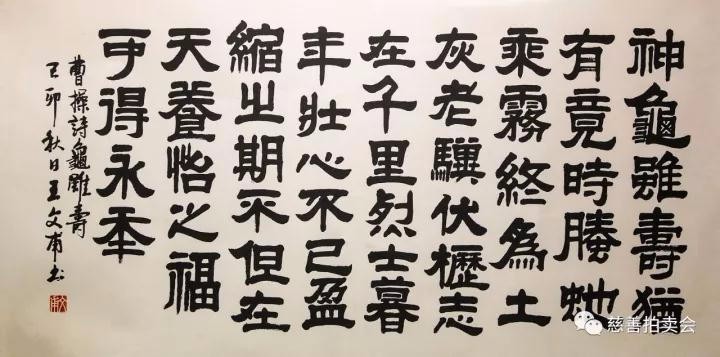 神龜雖壽猶
有竟時螣虵
乘霧終為土
灰老驥伏櫪志
在千里烈士暮
年壯心不已盈
縮之期不但在
天養怡之福
可得永年
曹操詩龜雖壽
己卯秋日王文甫书
慈善拍卖会